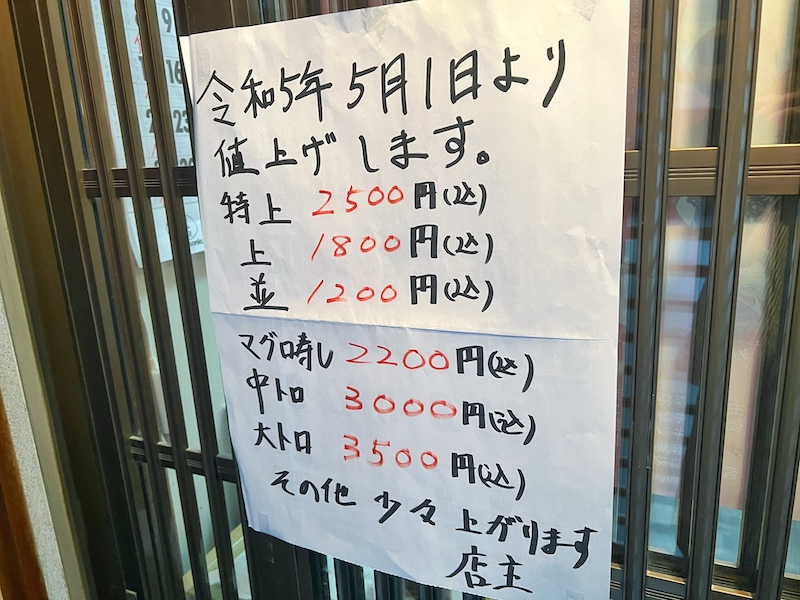 令和5年 5月1日より
値上げします。
特上 2500円(込)
上 1800円(込)
並 1200円(込)
マグロ寿し 2200円(込)
中トロ 3000円(込)
大トロ 3500円(込)
その他 少々 上がります
店主
9
16
23